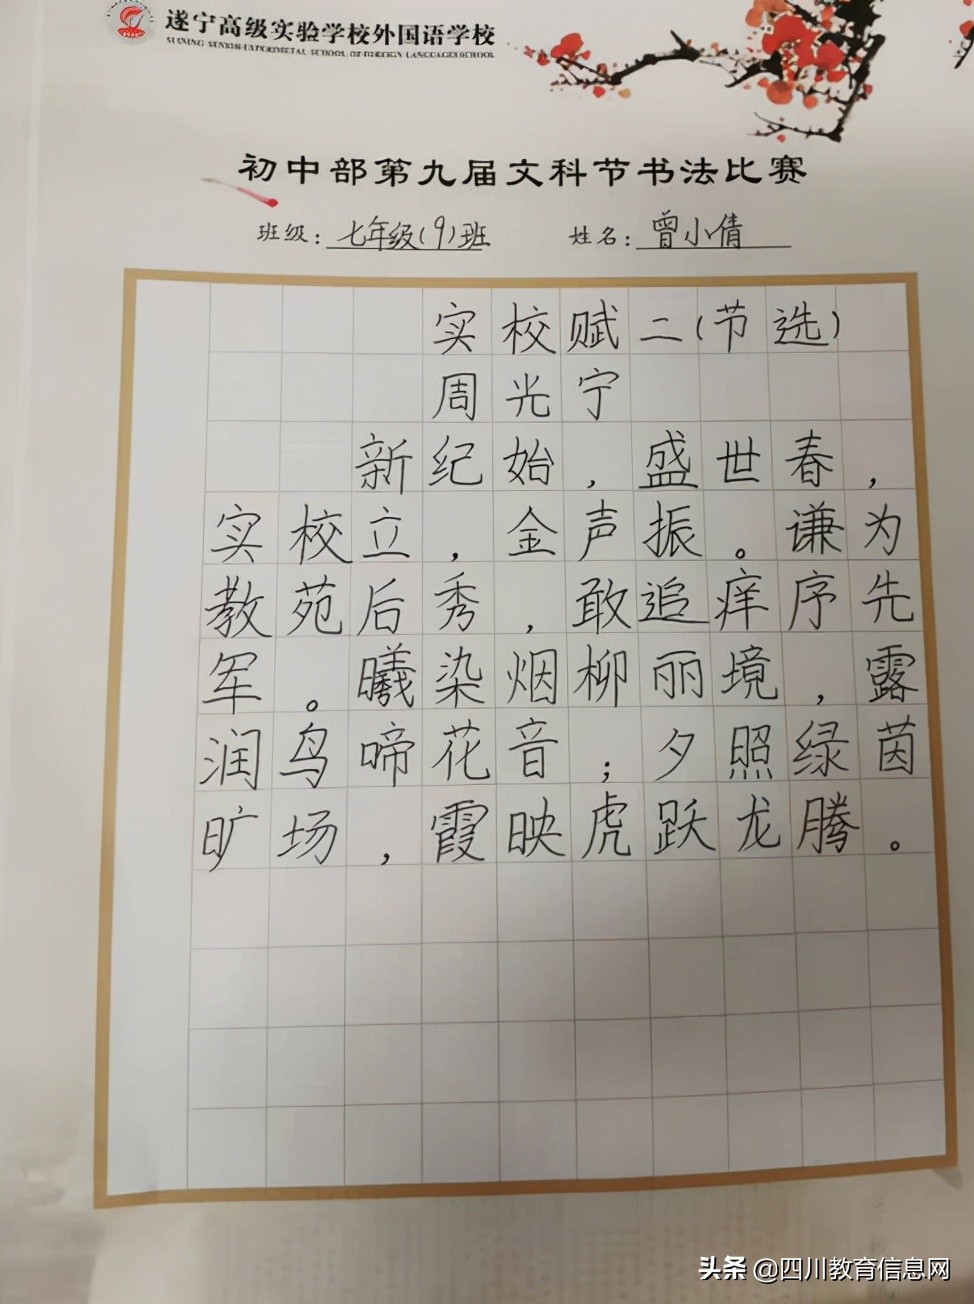 遂宁高级实验学校外国语学校
初中部第九届文科节书法比赛
班级：七年级(9)班 姓名：曾小倩
实校赋二(节选)
周光宁
新纪始，盛世春，
实校立，金声振。谦为
教苑后秀，敢追痒序先
军。曦染烟柳丽境，露
润鸟啼花音；夕照绿茵
旷场，霞映虎跃龙腾。
头条 @四川教育信息网